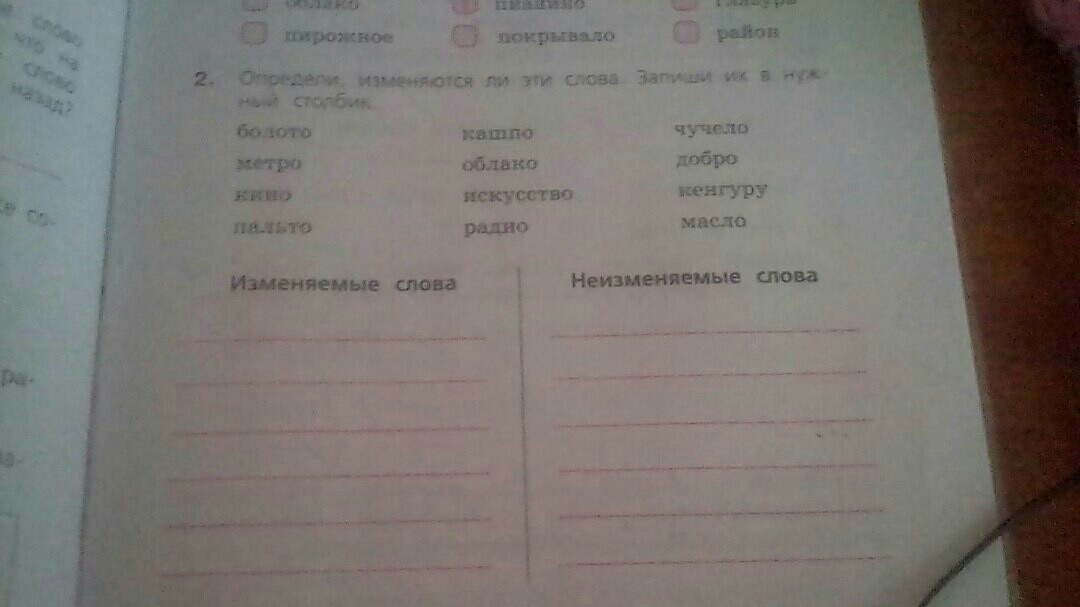 е слово
что на
слово
назад?
се со-
ра-
облако пианино глазурь
пирожное покрывало район
2. Определи, изменяются ли эти слова. Запиши их в нуж-
ный столбик.
болото кашпо чучело
метро облако добро
кино искусство кенгуру
пальто радио масло
Изменяемые слова Неизменяемые слова